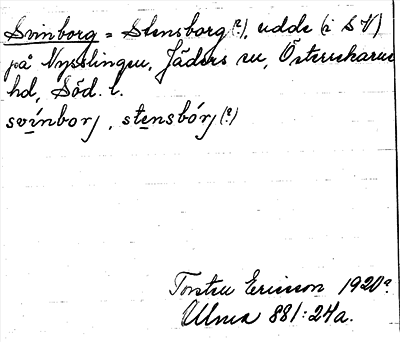 Svinborg = Stensborg (?), udde (i SV)
på Nysslingen, Jäders sn, Österrekarne
hd, Söd. l.
svínborj, stensbórj (?)
Torsten Ericsson 1920?
Ulma 881:24a.